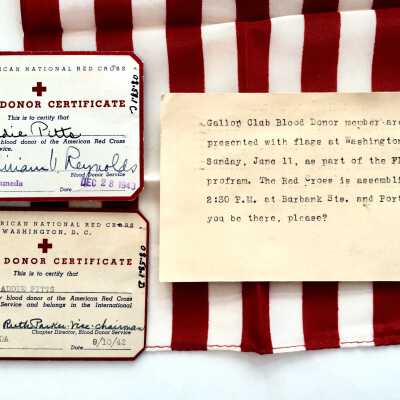 RICAN NATIONAL RED CROSS
DONOR CERTIFICATE
This is to certify that
die Pitts
blood donor of the American Red Cross
vice.
William V. Reynolds
Blood Donor Service
ameda
Date
DEC 28 1943
AMERICAN NATIONAL RED CROSS
WASHINGTON, D. C.
DONOR CERTIFICATE
This is to certify that
ADDIE PITTS
y blood donor of the American Red Cross
Service and belongs in the International
Ruth Parker - Vice-chairman
Chapter Director, Blood Donor Service
DA
Date
8/10/42
Gallop Club Blood Donor member are
presented with flags at Washington
Sunday, June 11, as part of the Fl
profram. The Red Cross is assembli
2:30 P.M. at Burbank Sts. and Port
you be there, please?